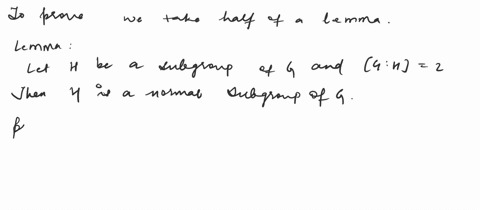 To prove we take half of a lemma.
Lemma:
Let H be a subgroup of G and [G:H] = 2
Then H is a normal subgroup of G.
p